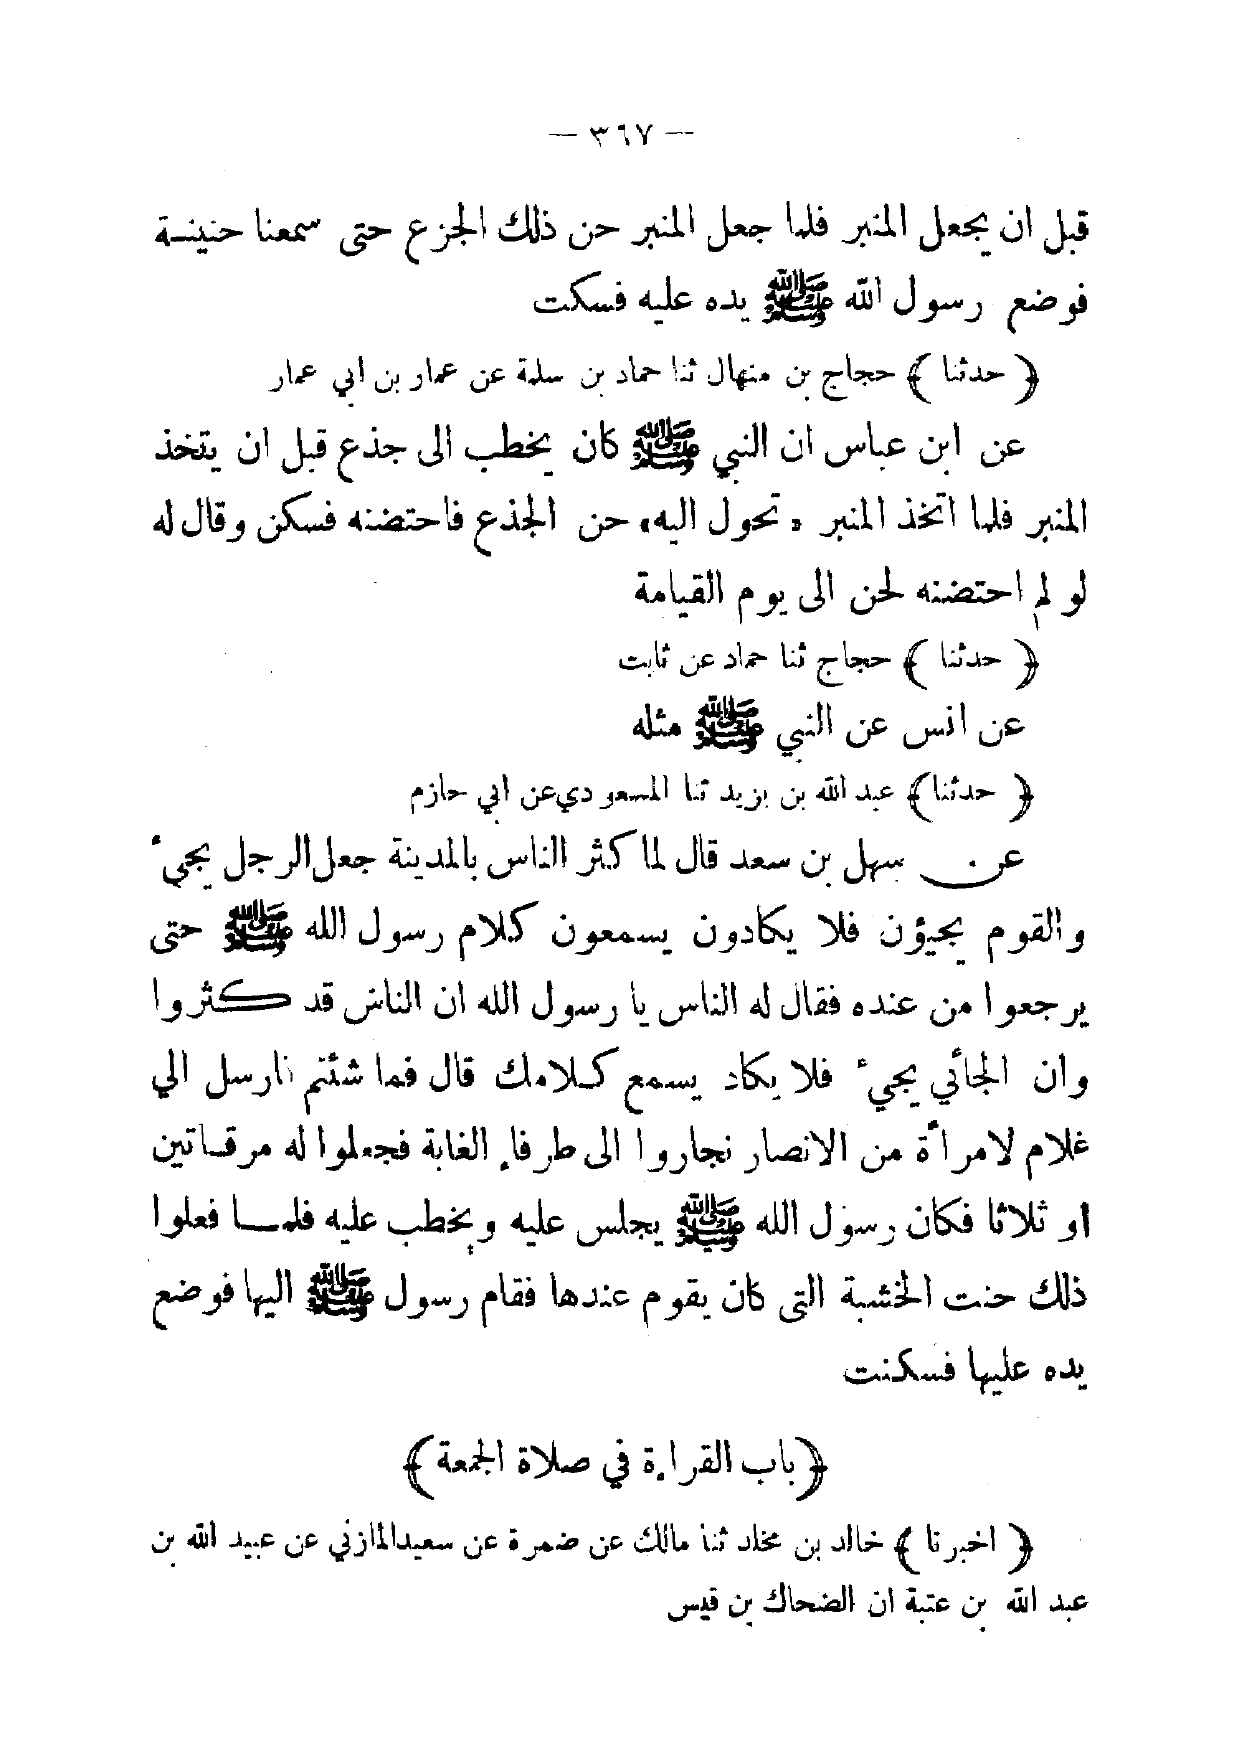 — ٣٦٧ —
قبل ان يجعل المنبر فلما جعل المنبر حن ذلك الجزع حتى سمعنا حنينـة
فوضع رسول الله ﷺ يده عليه فسكت
﴿ حدثنا ﴾ حجاج بن منهال ثنا حماد بن سلمة عن عمار بن ابي عمار
عن ابن عباس ان النبي ﷺ كان يخطب الى جذع قبل ان يتخذ
المنبر فلما اتخذ المنبر « تحول اليه» حن الجذع فاحتضنه فسكن وقال له
لو لم احتضنه لحن الى يوم القيامة
﴿ حدثنا ﴾ حجاج ثنا حماد عن ثابت
عن انس عن النبي ﷺ مثله
﴿ حدثنا﴾ عبد الله بن يزيد ثنا المسعودي عن ابي حازم
عن سهل بن سعد قال لما كثر الناس بالمدينة جعل الرجل يجيء
والقوم يجيؤن فلا يكادون يسمعون كلام رسول الله ﷺ حتى
يرجعوا من عنده فقال له الناس يا رسول الله ان الناس قد كثروا
وان الجائي يجيء فلا يكاد يسمع كلامك قال فما شئتم فارسل الي
غلام لامرأة من الانصار نجاروا الى طرفاء الغابة فجعلوا له مرقاتين
او ثلاثا فكان رسول الله ﷺ يجلس عليه ويخطب عليه فلمـا فعلوا
ذلك حنت الخشبة التى كان يقوم عندها فقام رسول ﷺ اليها فوضع
يده عليها فسكنت
﴿باب القراءة في صلاة الجمعة﴾
﴿ اخبرنا ﴾ خالد بن مخلد ثنا مالك عن ضمرة عن سعيدالمازني عن عبيد الله بن
عبد الله بن عتبة ان الضحاك بن قيس